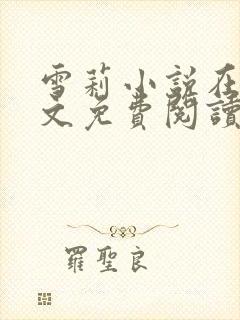 雪莉小说在
文免費閱讀
羅聖良